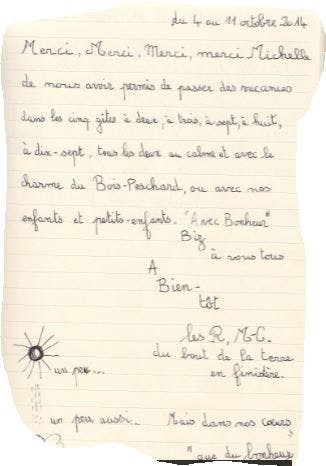 du 4 au 11 octobre 2014
Merci, Merci, Merci, merci Michelle
de nous avoir permis de passer des vacances
dans les cinq gîtes à deux, à trois, à sept, à huit,
à dix-sept, tous les deux au calme et avec le
charme du Bois-Peschard, ou avec nos
enfants et petits-enfants. "Avec Bonheur"
Biz
à vous tous
A
Bien-
tôt
les R, M-C.
du bout de la terre
en finistère.
un peu...
un peu aussi.. Mais dans nos cœurs
"que du bonheur